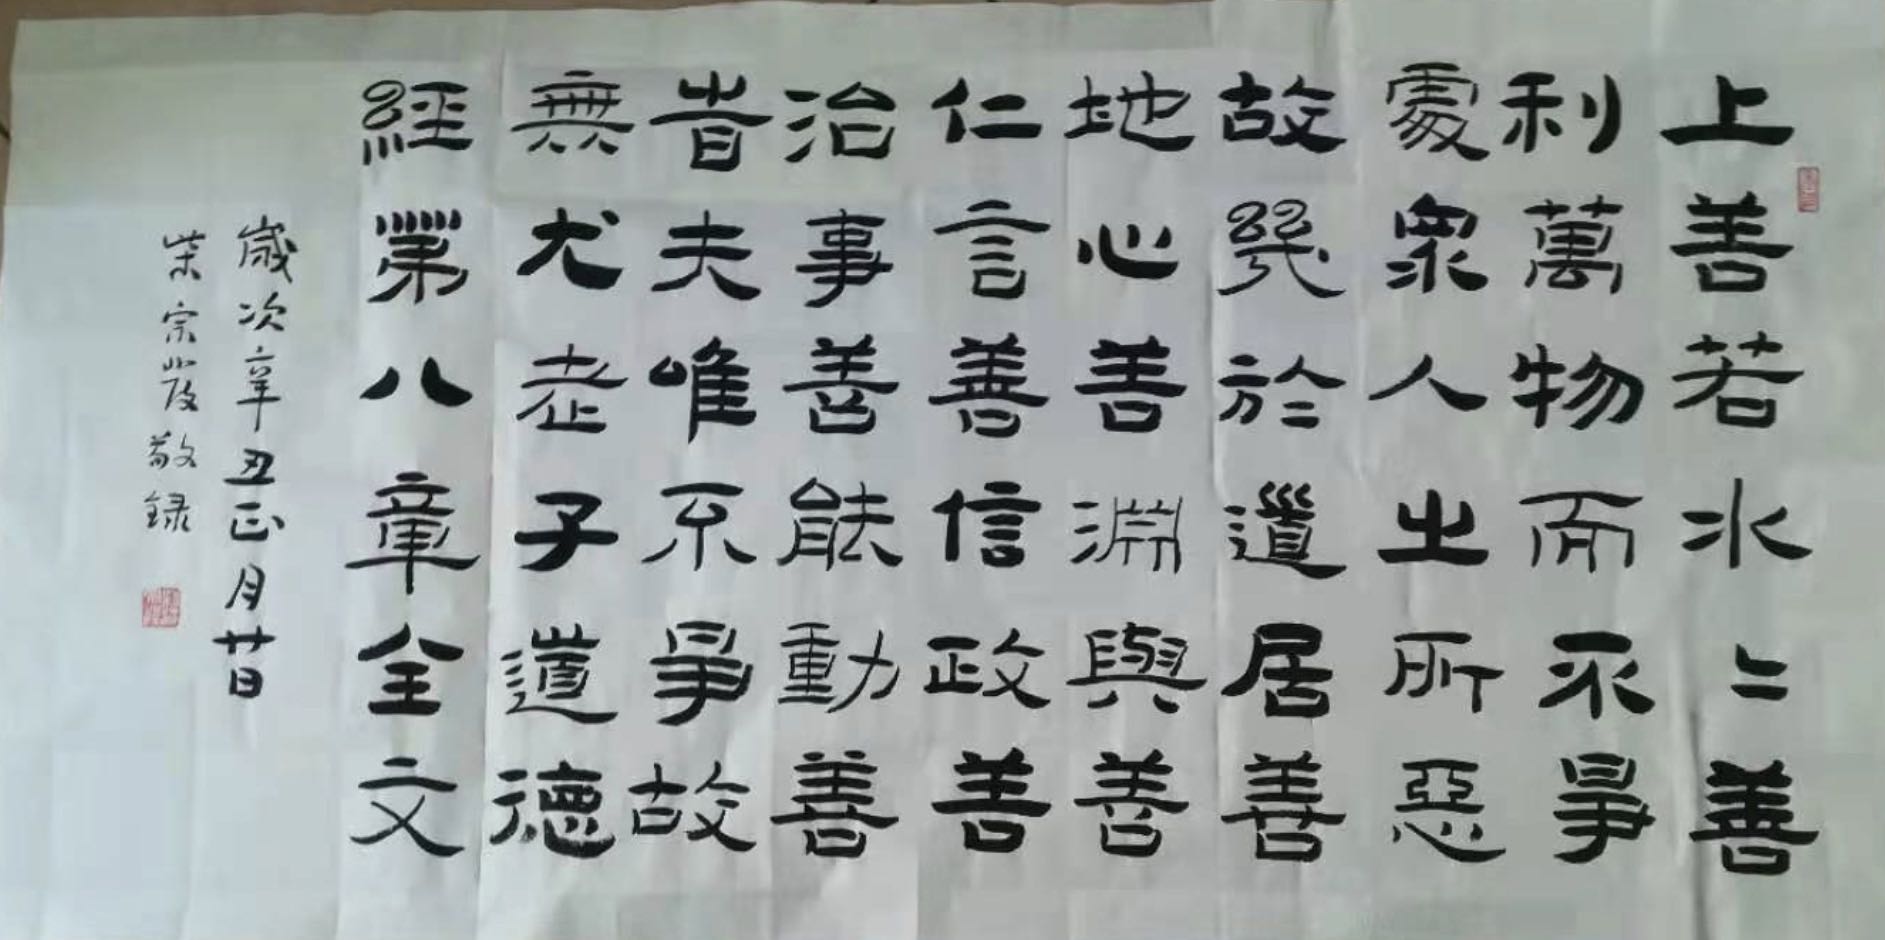 上善若水〻善
利萬物而不爭
處眾人之所惡
故幾於道居善
地心善淵與善
仁言善信政善
治事善能動善
旹夫唯不爭故
無尤老子道德
經第八章全文
歲次辛丑正月廿日
柴宗敬録